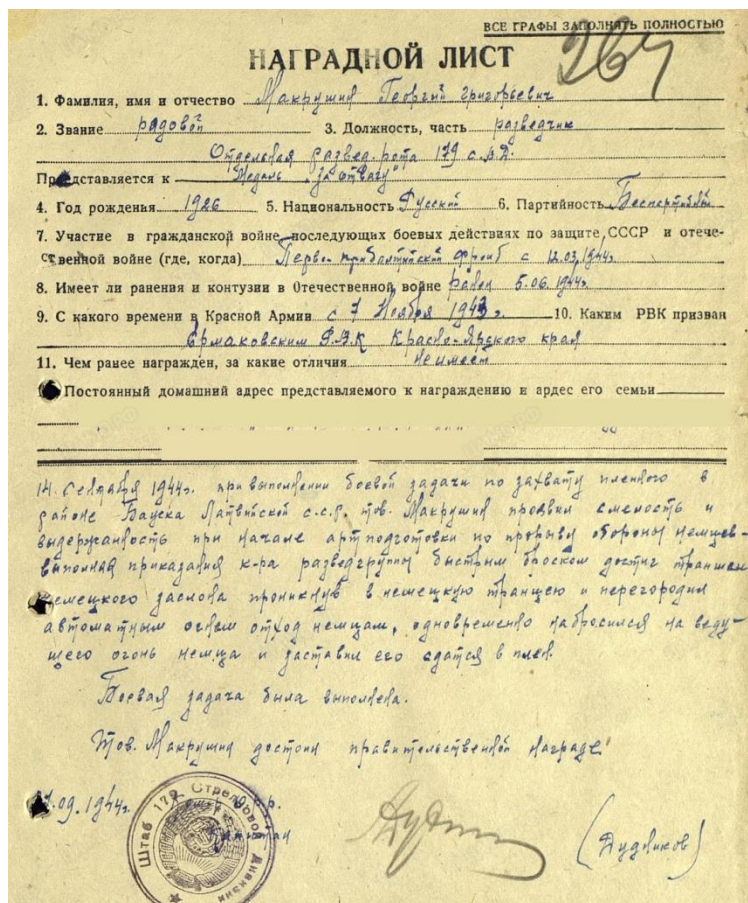 ВСЕ ГРАФЫ ЗАПОЛНЯТЬ ПОЛНОСТЬЮ
264
НАГРАДНОЙ ЛИСТ
1. Фамилия, имя и отчество Макрушин Георгий Григорьевич
2. Звание рядовой 3. Должность, часть разведчик
Отдельная развед. рота 179 с.д.
Представляется к Медаль "За отвагу"
4. Год рождения 1926 5. Национальность Русский 6. Партийность Беспартийный
7. Участие в гражданской войне, последующих боевых действиях по защите СССР и отече-
ственной войне (где, когда) Перво-прибалтийский фронт с 12.03.1944г.
8. Имеет ли ранения и контузии в Отечественной войне ранен 5.06.1944г.
9. С какого времени в Красной Армии с 7 Ноября 1943г. 10. Каким РВК призван
Ермаковским Р.В.К Красно-Ярского края
11. Чем ранее награжден, за какие отличия не имеет
Постоянный домашний адрес представляемого к награждению и ардес его семьи
14. Сентября 1944г. при выполнении боевой задачи по захвату пленного в
районе Бауска Латвийской с.с.р. тов. Макрушин проявил смелость и
выдержанность при начале артподготовки по прорыву обороны немцев-
выполняя приказания к-ра разведгруппы быстрым броском достиг траншеи
немецкого заслона проникнув в немецкую траншею и перегородил
автоматным огнем отход немцам, одновременно набросился на веду-
щего огонь немца и заставил его сдатся в плен.
Боевая задача была выполнена.
Тов. Макрушин достоин правительственной награде
.09.1944г.
Капитан
(Дудников)
Штаб 179 Стрелковой Дивизии